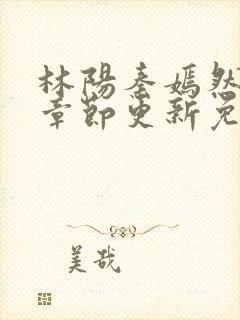 林陽秦嫣然
章節更新免
美哉